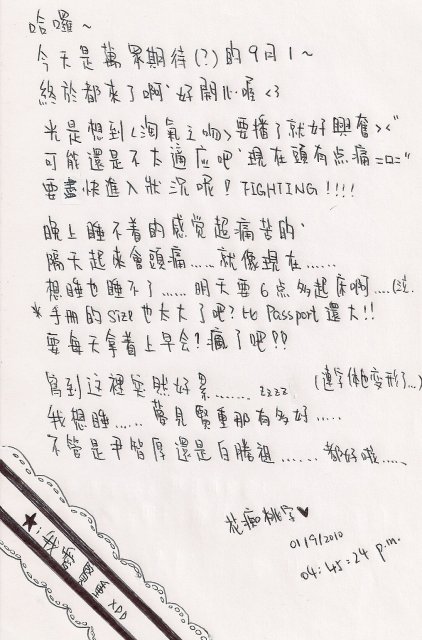 哈囉~
今天是萬眾期待(?)的9月1~
終於都來了啊 好開心喔<3
光是想到<淘氣之吻>要播了就好興奮><"
可能還是不太適应吧 現在頭有点痛=口="
要盡快進入狀況呢! FIGHTING!!!!
晚上睡不着的感觉超痛苦的
隔天起來會頭痛.....就像現在......
想睡也睡不了......明天要6点多起床啊....(泣
*手册的size也太大了吧?比Passport還大!!
要每天拿着上早会?瘋了吧??
寫到這裡突然好累....... zzzz (連字体也变形了...)
我想睡......夢見賢重那有多好.....
不管是尹智厚還是白勝祖.......都好啦.....
花痴桃字♥
01/9/2010
04:45:24 p.m.
★:我愛 XDD